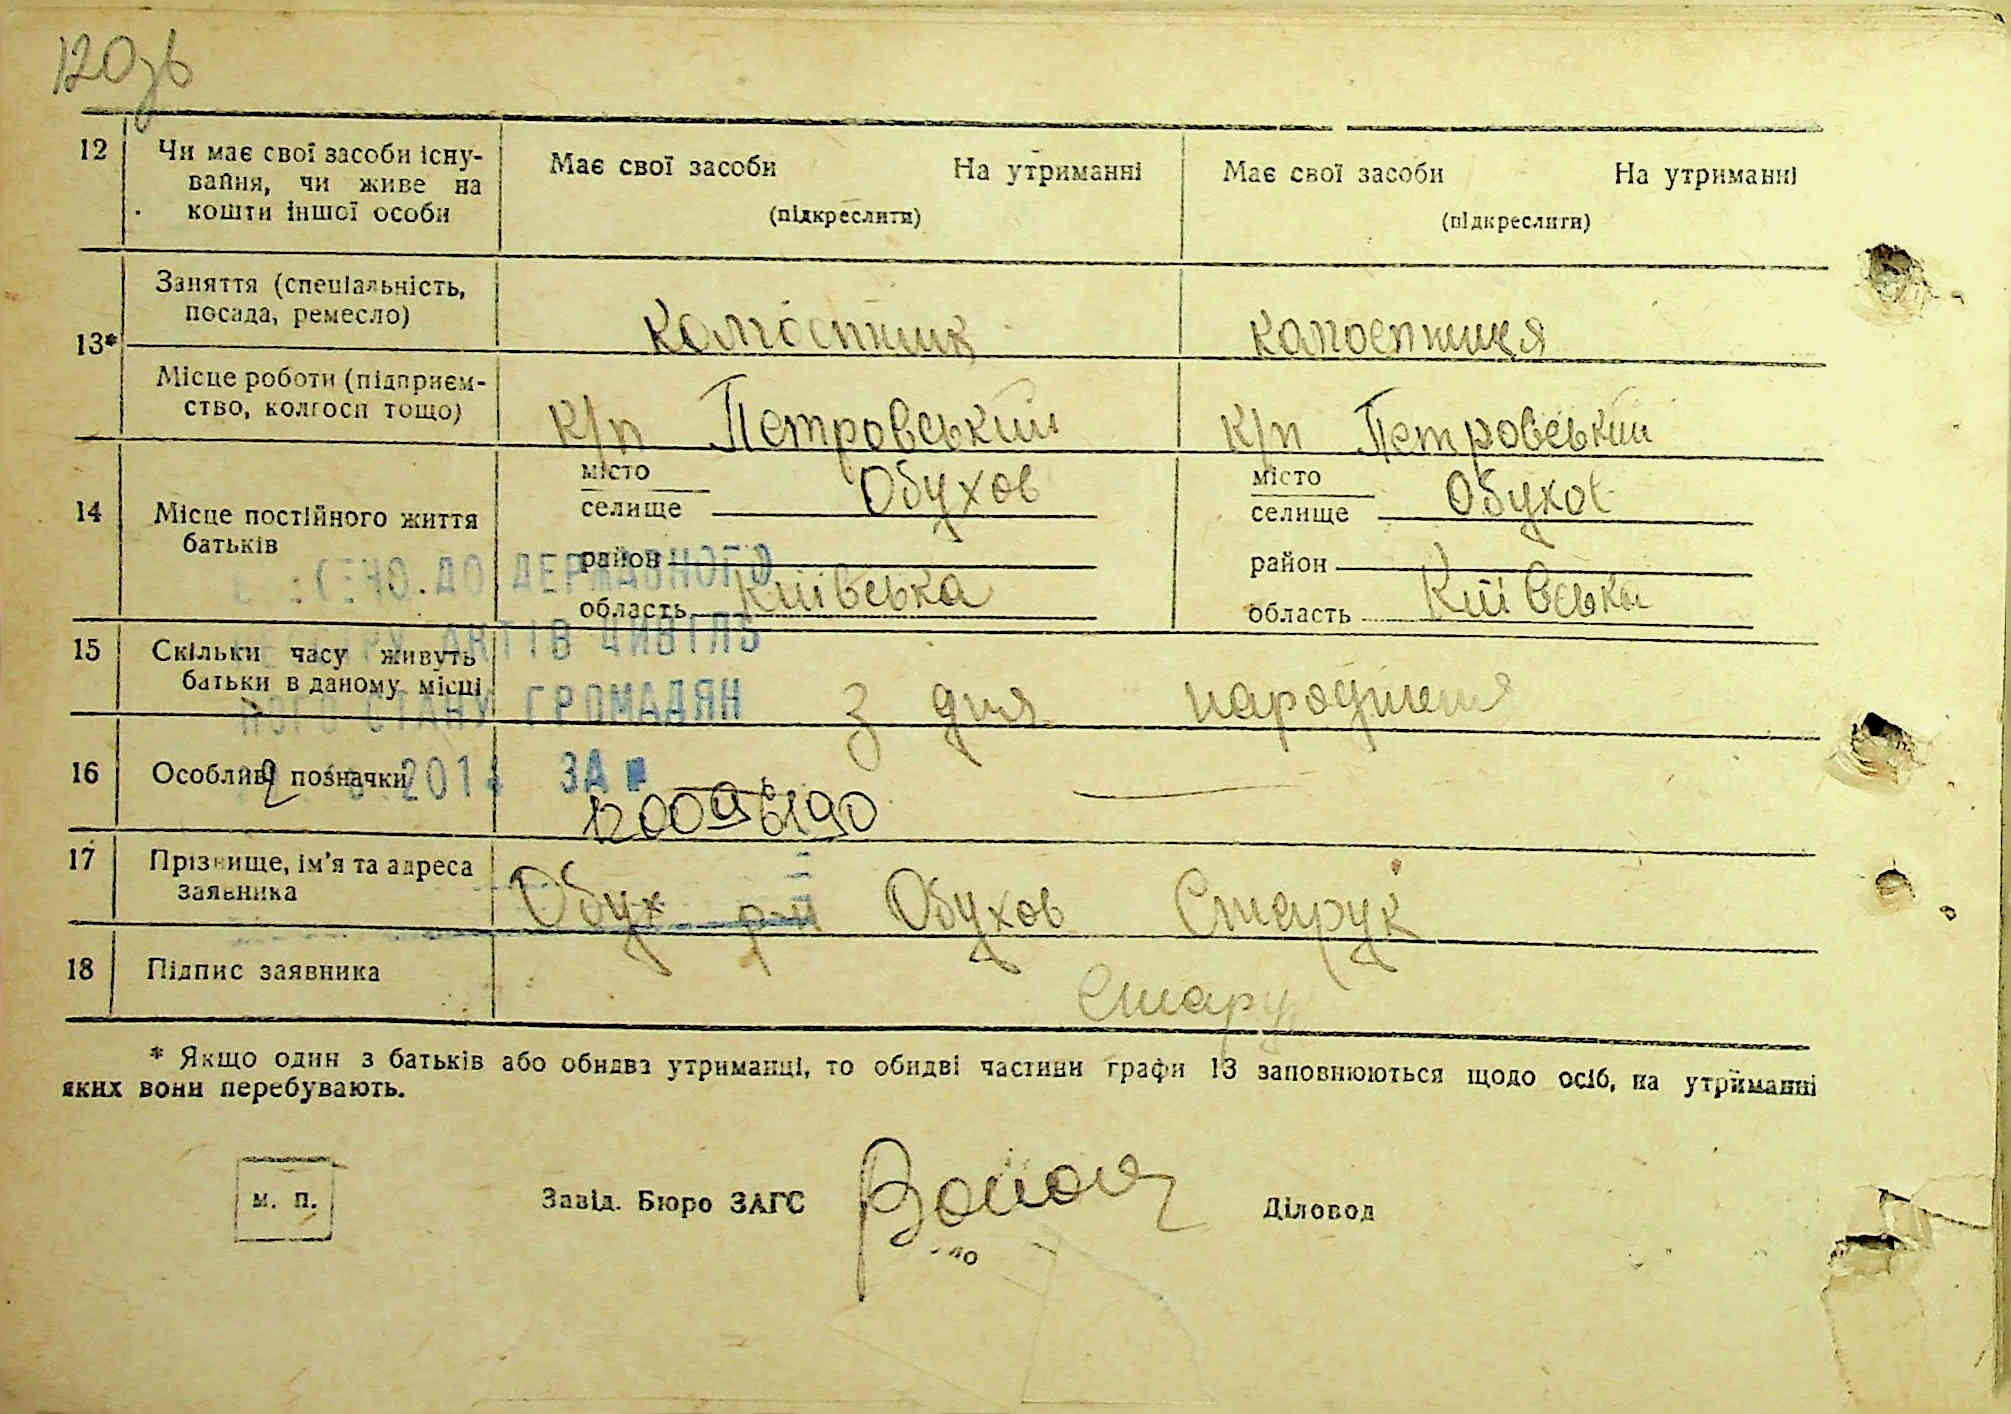 120зв
12 Чи має свої засоби існу-
вання, чи живе на
кошти іншої особи
Має свої засоби На утриманні
(підкреслити)
Має свої засоби На утриманні
(підкреслити)
13* Заняття (спеціальність,
посада, ремесло)
колгоспник
колгоспниця
Місце роботи (підприєм-
ство, колгосп тощо)
к/п Петровський
к/п Петровський
14 Місце постійного життя
батьків
місто
селище Обухов
район
область Київська
місто
селище Обухов
район
область Київська
ДО ДЕРЖАВНОГО
АКТІВ ЦИВІЛЬ
НОГО СТАНУ ГРОМАДЯН
201 ЗА №
15 Скільки часу живуть
батьки в даному місці
з дня народження
16 Особливі позначки
120096190
17 Прізвище, ім'я та адреса
заявника
Обух р-н Обухов Старук
18 Підпис заявника
Стару
* Якщо один з батьків або обидва утриманці, то обидві частини графи 13 заповнюються щодо осіб, на утриманні
яких вони перебувають.
м. п.
Завід. Бюро ЗАГС
Діловод